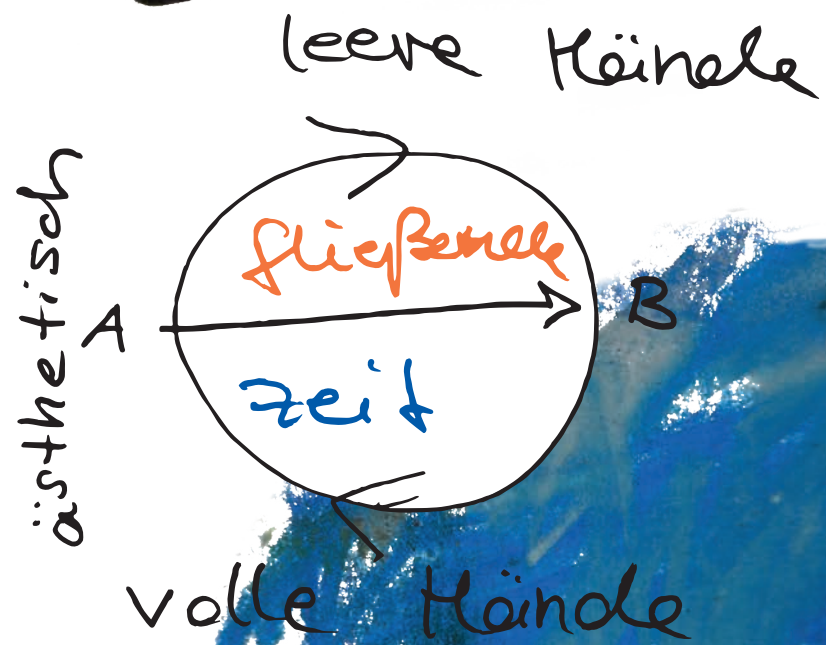 leere Hände
ästhetisch
fließende
A
B
zeit
volle Hände